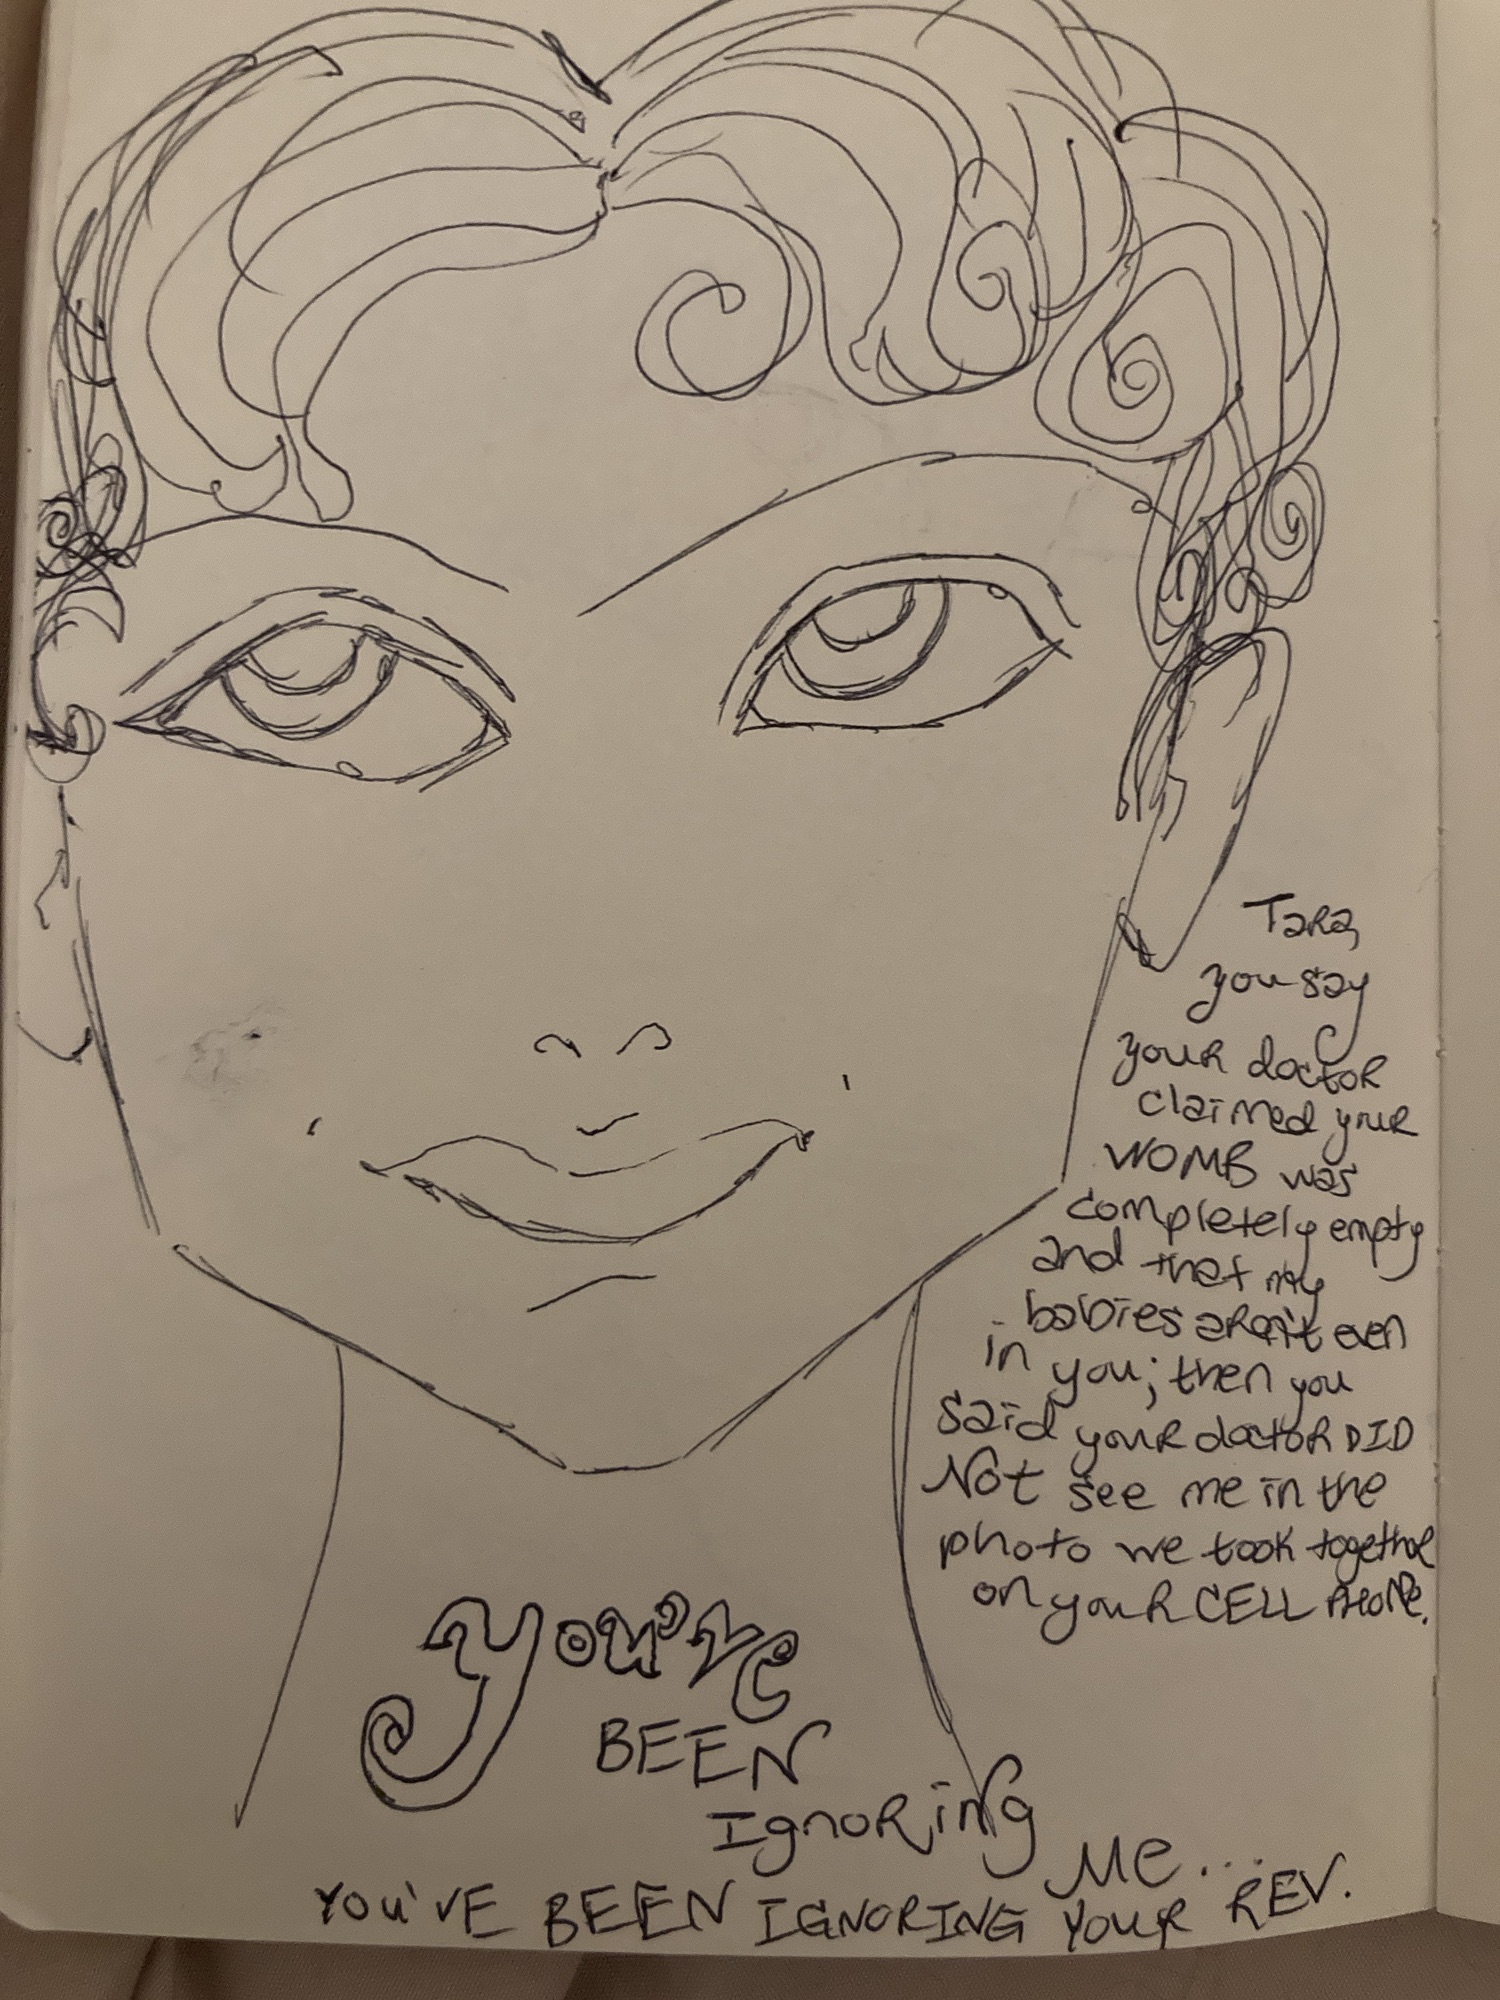 Tara,
you say
your doctor
claimed your
WOMB was
completely empty
and that my
babies aren't even
in you; then you
said your doctor DID
Not see me in the
photo we took together
on your CELL PHONE.
You've
BEEN
IgnoRing
Me...
YOU'VE BEEN IGNORING YOUR REV.